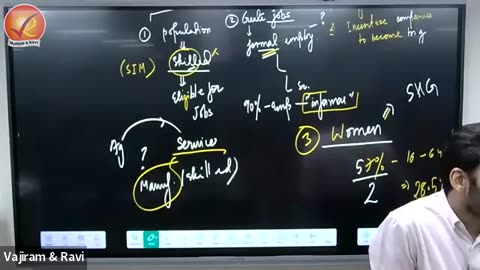 VAJIRAM & RAVI
① population
Skilled
(SIM)
eligible for
Jobs
Service
?
Manuf. (skilled)
② Create jobs
formal employ.
90%
"informal"
?
Incentivise companies
to become big
③ Women
SHG
57% - 16 - 64
2
28.5
Vajiram & Ravi